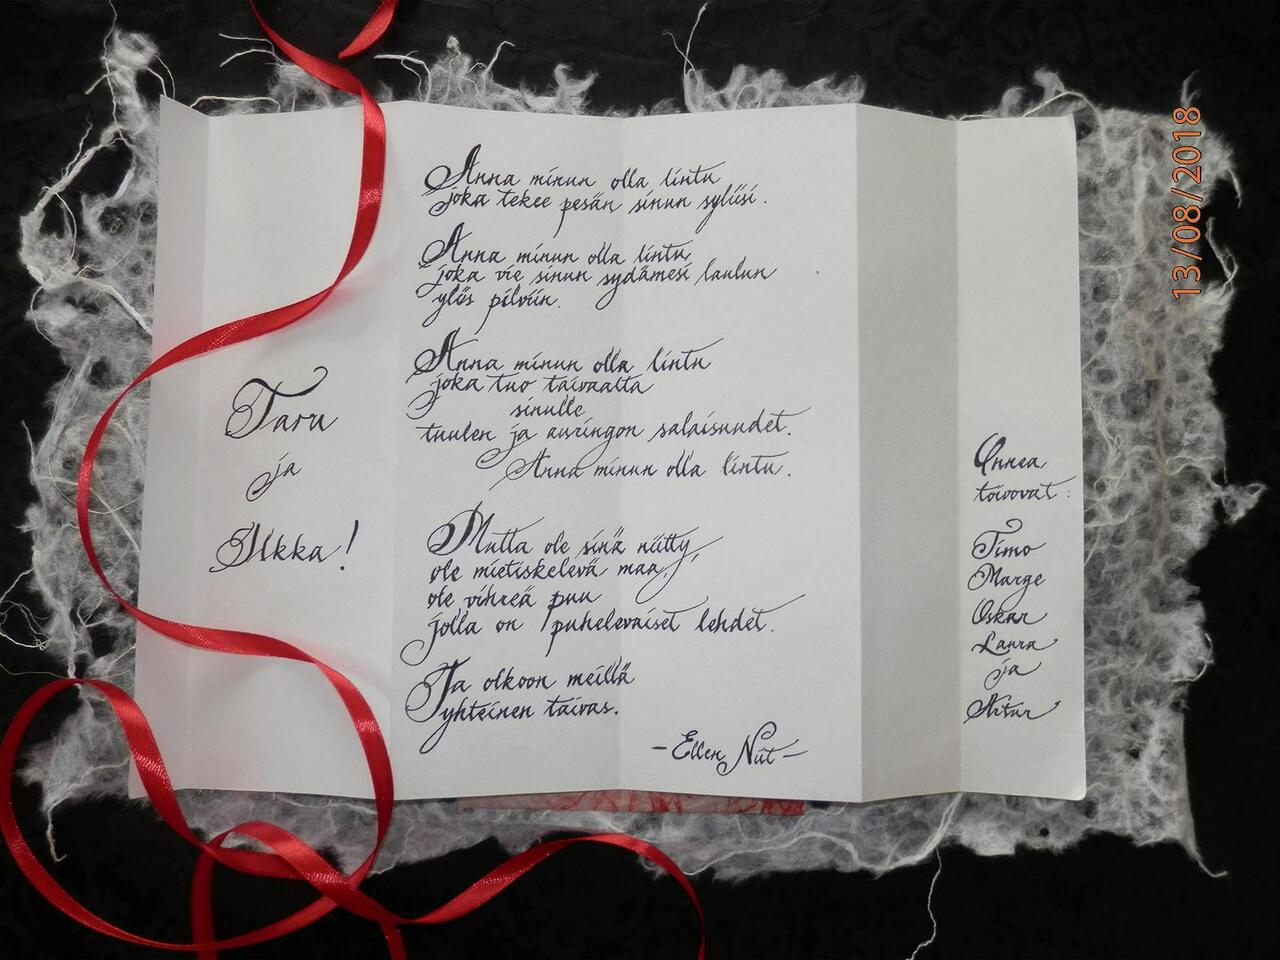 Taru
ja
Ilkka!
Anna minun olla lintu
joka tekee pesän sinun syliisi.
Anna minun olla lintu
joka vie sinun sydämesi laulun
ylös pilviin.
Anna minun olla lintu
joka tuo taivaalta
sinulle
tuulen ja auringon salaisuudet.
Anna minun olla lintu.
Mutta ole sinä niitty,
ole mietiskelevä maa,
ole vihreä puu
jolla on puheleváiset lehdet.
Ja olkoon meillä
yhteinen taivas.
- Ellen Niit -
Onnea
toivovat:
Timo
Marge
Oskar
Laura
ja
Artur
13/08/2018